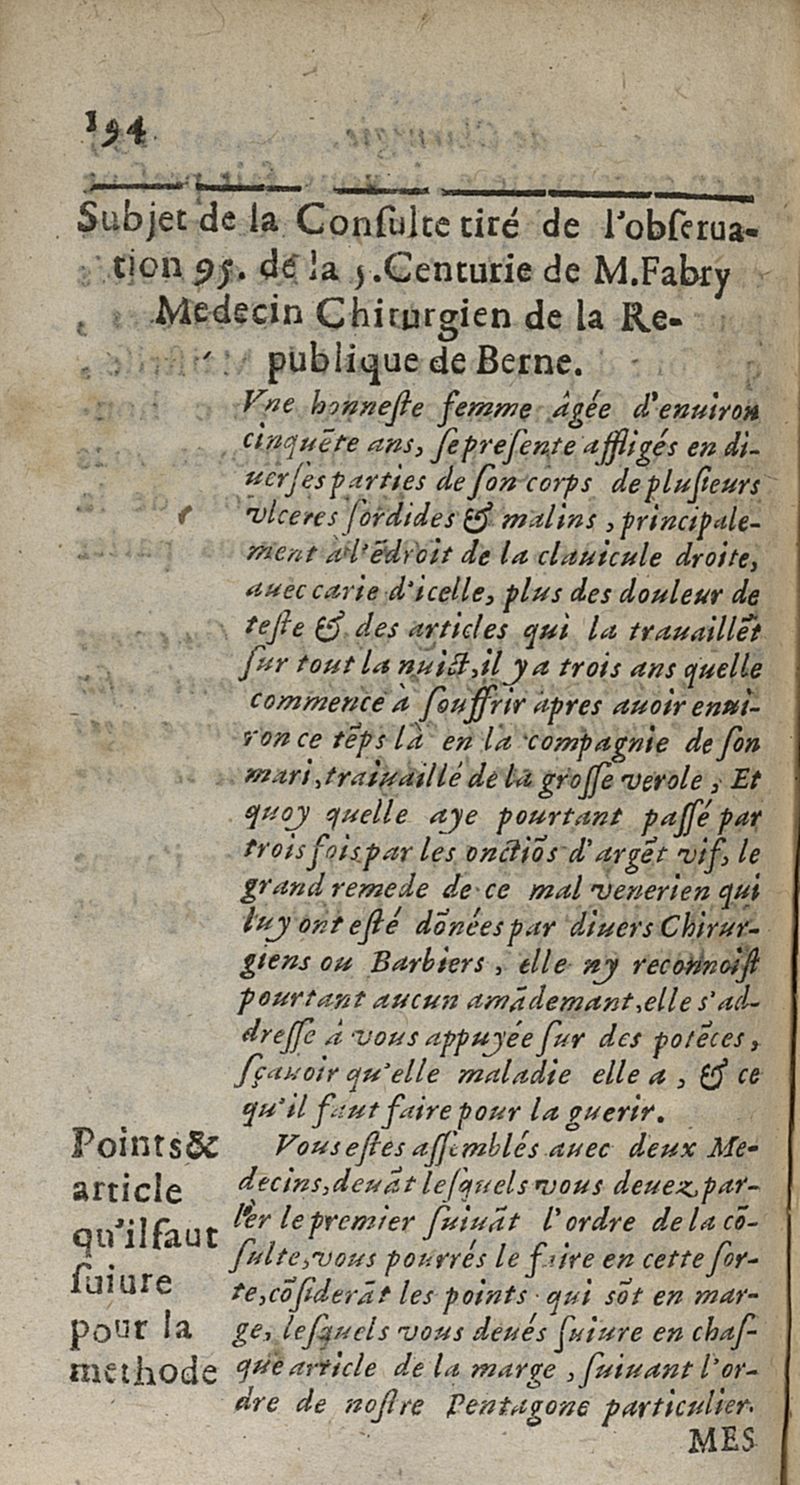 194
Subjet de la Conſulte tiré de l'obſerua-
tion 95. de la 5.Centurie de M.Fabry
Medecin Chirurgien de la Re-
publique de Berne.
Vne honneſte femme âgée d'enuiron
cinquẽte ans, ſe preſente affligés en di-
uerſes parties de ſon corps de pluſieurs
vlceres ſordides & malins , principale-
ment à l'ẽdroit de la clauicule droite,
auec carie d'icelle, plus des douleur de
teſte & des articles qui la trauaillẽt
ſur tout la nuict,il y a trois ans quelle
commence à ſouffrir apres auoir enui-
ron ce tẽps là en la compagnie de ſon
mari,trauaillé de la groſſe verole , Et
quoy quelle aye pourtant paſſé par
trois fois par les onctiõs d'argẽt vif, le
grand remede de ce mal venerien qui
luy ont eſté dõnées par diuers Chirur-
giens ou Barbiers , elle ny reconnoiſt
pourtant aucun amãdemant,elle s'ad-
dreſſe à vous appuyée ſur des potẽces,
ſçauoir qu'elle maladie elle a , & ce
qu'il faut faire pour la guerir.
Vous eſtes aſſemblés auec deux Me-
decins,deuãt leſquels vous deuez,par-
lèr le premier ſuiuãt l'ordre de la cõ-
ſulte,vous pourrés le faire en cette ſor-
te,cõſiderãt les points qui sõt en mar-
ge, leſquels vous deués ſuiure en chaſ-
que article de la marge , ſuiuant l'or-
dre de noſtre Pentagone particulier.
Points&
article
qu'il faut
ſuiure
pour la
methode
MES